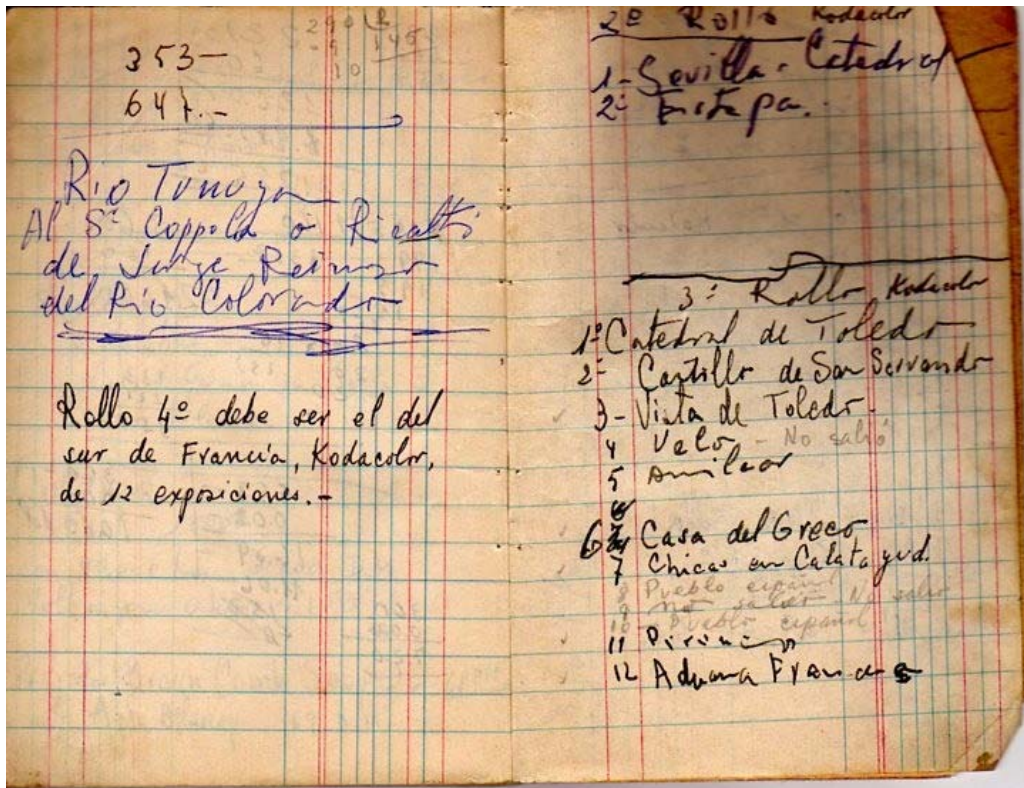 353—
647.-
290 2
145
10
Río Tunuyan
Al Sr Coppola o Ricalti
de Jorge Reinoso
del Río Colorado
Rollo 4º debe ser el del
sur de Francia, Kodacolor,
de 12 exposiciones.-
2º Rollo Kodacolor
1- Sevilla - Catedral
2- Estepa.
3º Rollo Kodacolor
1º Catedral de Toledo
2- Castillo de San Servando
3- Vista de Toledo.
4 Velo - No salió
5 Amilcar
6 Casa del Greco
7 Chicas en Calatayud.
8 Pueblo español
9 No salió
10 - Pueblo español
11 Pirineos
12 Aduana Francesa